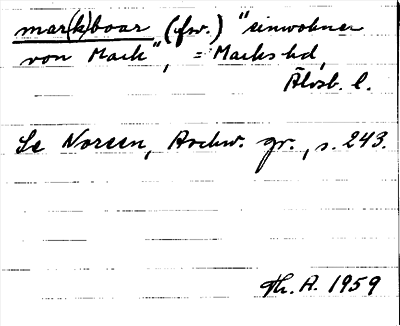 mar(k)boar (fsv.) "einwohner
von Mark", = Marks hd,
Älvsb. l.
Se Noreen, Aschw. gr., s. 243.
Th. A. 1959